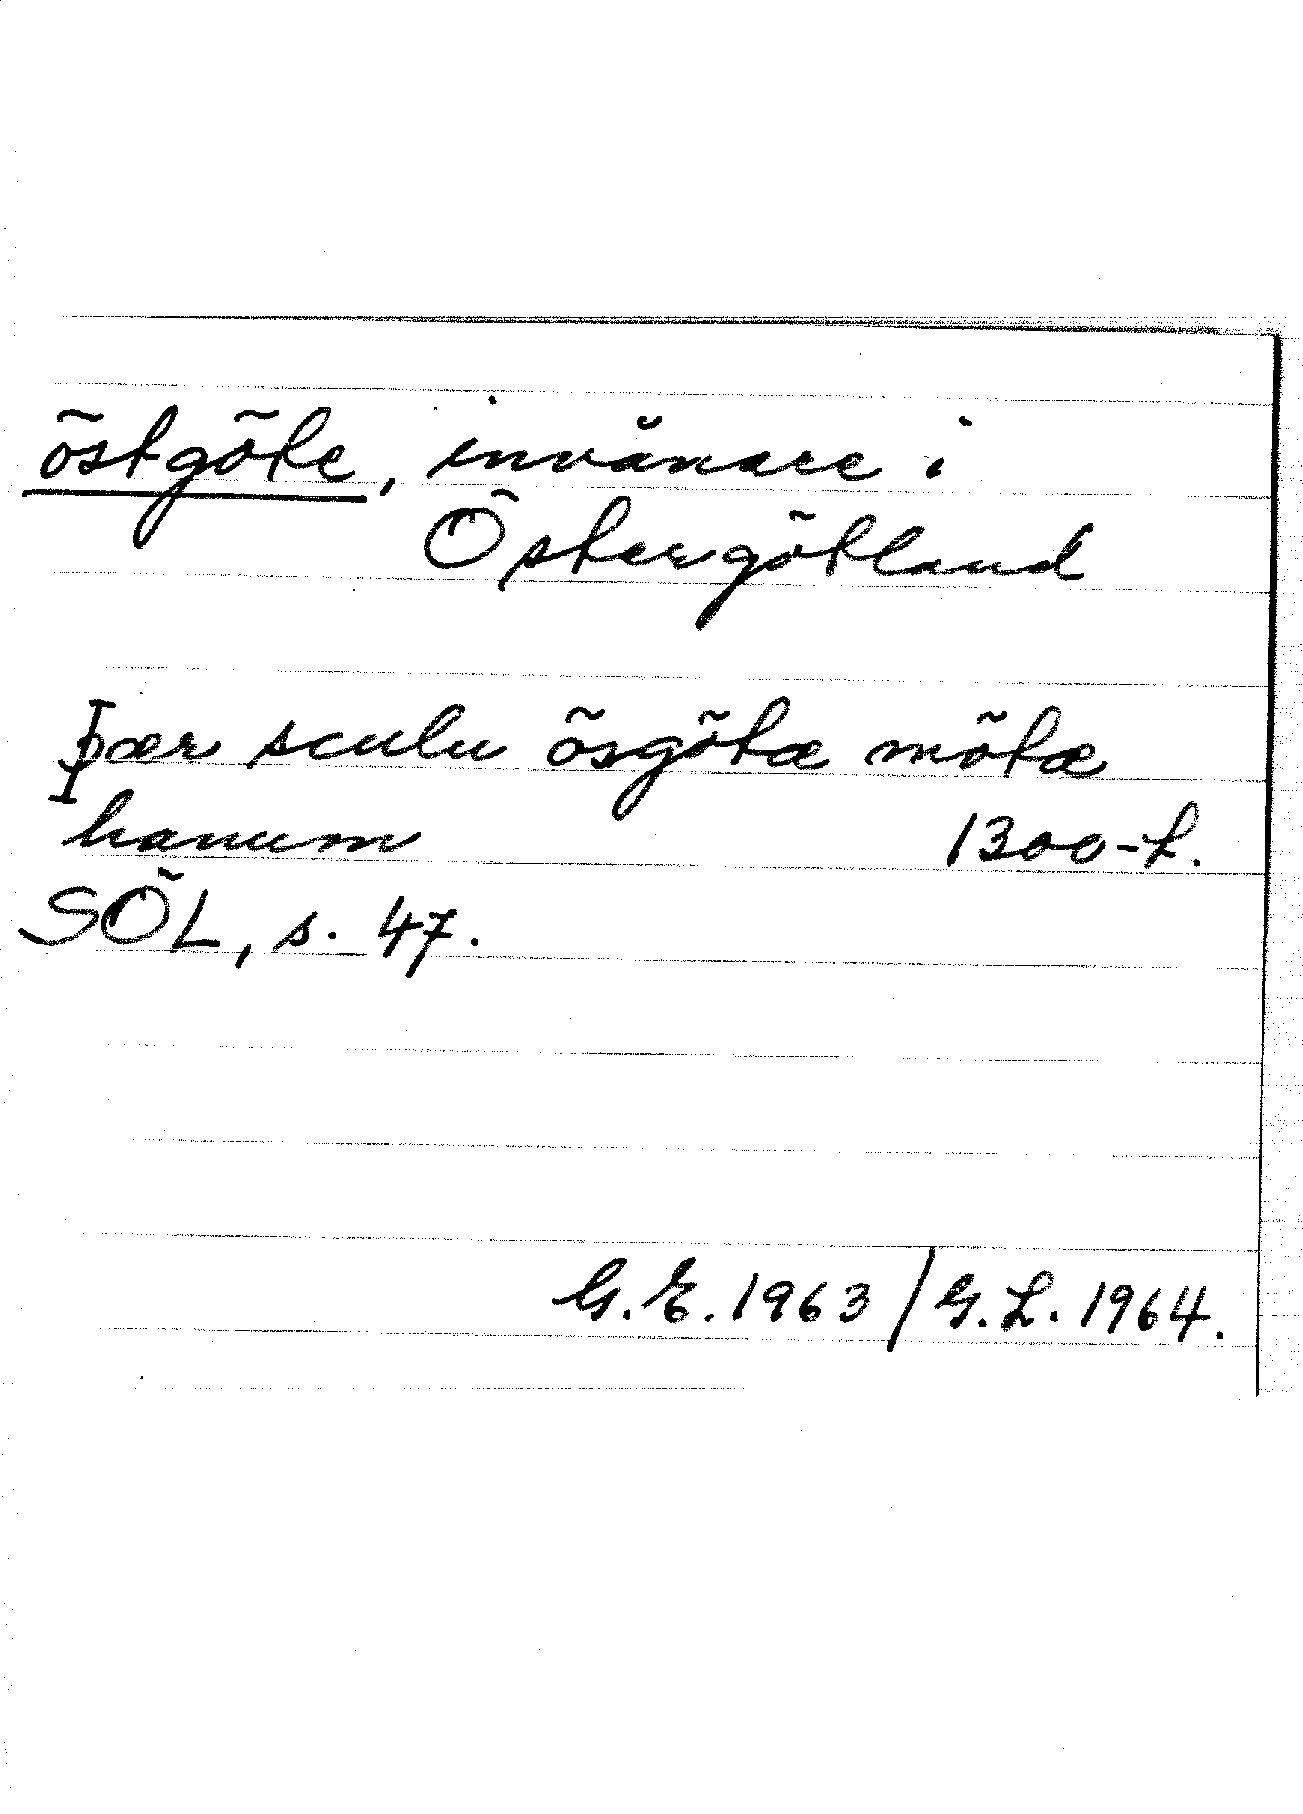 östgöte, invånare i
Östergötland
Þær sculu ösgötæ mötæ
hanum 1300-t.
SÖL, s. 47.
G.E. 1963 / G.L. 1964.